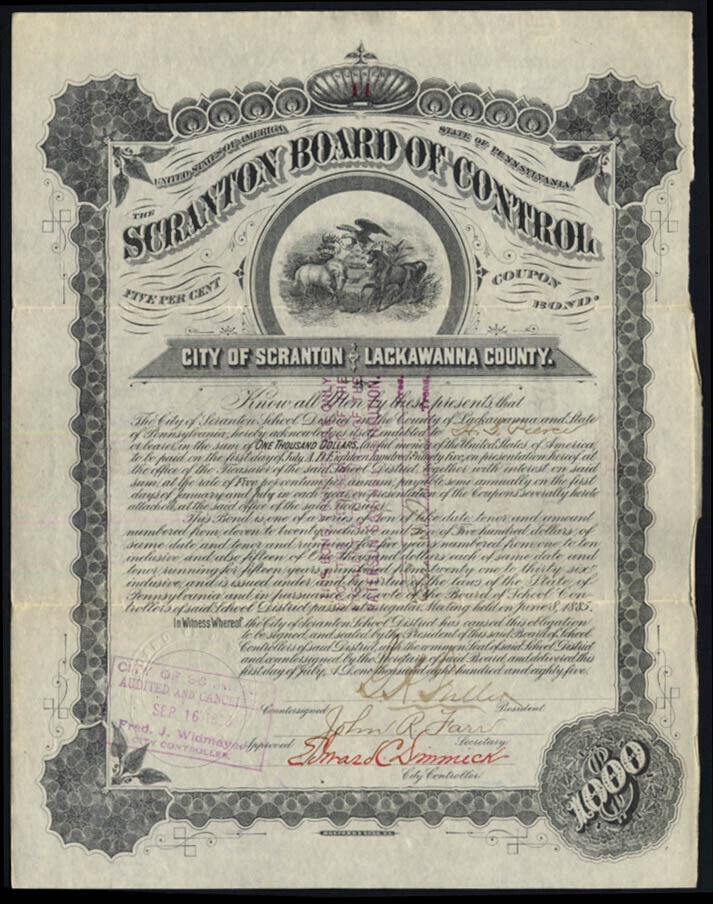 11
UNITED STATES OF AMERICA
STATE OF PENNSYLVANIA.
THE
SCRANTON BOARD OF CONTROL
FIVE PER CENT
COUPON BOND.
CITY OF SCRANTON LACKAWANNA COUNTY.
Know all Men by these presents that
The City of Scranton School District in the County of Lackawanna and State
of Pennsylvania, hereby acknowledges itself indebted to
or bearer, in the sum of ONE THOUSAND DOLLARS, lawful money of the United States of America,
to be paid on the first day of July A.D. Eighteen hundred Ninety five, on presentation hereof at
the office of the Treasurer of the said School District, together with interest on said
sum, at the rate of Five per centum per annum, payable semi annually on the first
days of January and July in each year, on presentation of the Coupons severally hereto
attached, at the said office of the said Treasurer
This Bond is one of a series of ten of like date, tenor, and amount
numbered from eleven to twenty inclusive and of Five hundred dollars of
same date and tenor and running for five years numbered from one to ten
inclusive and also fifteen of One Thousand dollars each of same date and
tenor, running for fifteen years, numbered from twenty one to thirty six
inclusive, and is issued under and by virtue of the laws of the State of
Pennsylvania and in pursuance of a vote of the Board of School Con-
trollers of said School District passed at regular Meeting held on June 8, 1885.
In Witness Whereof the City of Scranton School District has caused this obligation
to be signed and sealed by the President of this said Board of School
Controllers of said District, with the common Seal of said School District
and countersigned by the Secretary of said Board, and delivered this
first day of July, A.D. one thousand eight hundred and eighty five.
President.
Countersigned
John R. Farr
Secretary.
Approved
Edward C. Dimmick
City Controller.
CITY OF
AUDITED AND CANCEL
SEP 16
Fred. J. Widmayer
CITY CONTROLLER
$1000